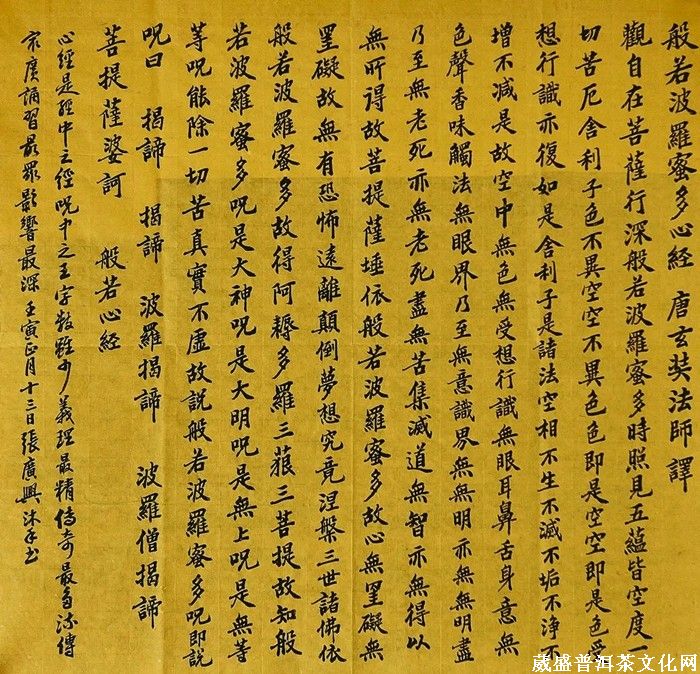 般若波羅蜜多心經 唐玄奘法師譯
觀自在菩薩行深般若波羅蜜多時照見五蘊皆空度一
切苦厄舍利子色不異空空不異色色即是空空即是色受
想行識亦復如是舍利子是諸法空相不生不滅不垢不淨不
增不減是故空中無色無受想行識無眼耳鼻舌身意無
色聲香味觸法無眼界乃至無意識界無無明亦無無明盡
乃至無老死亦無老死盡無苦集滅道無智亦無得以
無所得故菩提薩埵依般若波羅蜜多故心無罣礙無
罣礙故無有恐怖遠離顛倒夢想究竟涅槃三世諸佛依
般若波羅蜜多故得阿耨多羅三藐三菩提故知般
若波羅蜜多咒是大神咒是大明咒是無上咒是無等
等咒能除一切苦真實不虛故說般若波羅蜜多咒即說
咒曰 揭諦 揭諦 波羅揭諦 波羅僧揭諦
菩提薩婆訶 般若心經
心經是經中之經咒中之王字數雖少義理最精傳奇最多流傳
最廣誦習最眾影響最深壬寅正月十三日張廣興沐手書
葳盛普洱茶文化网